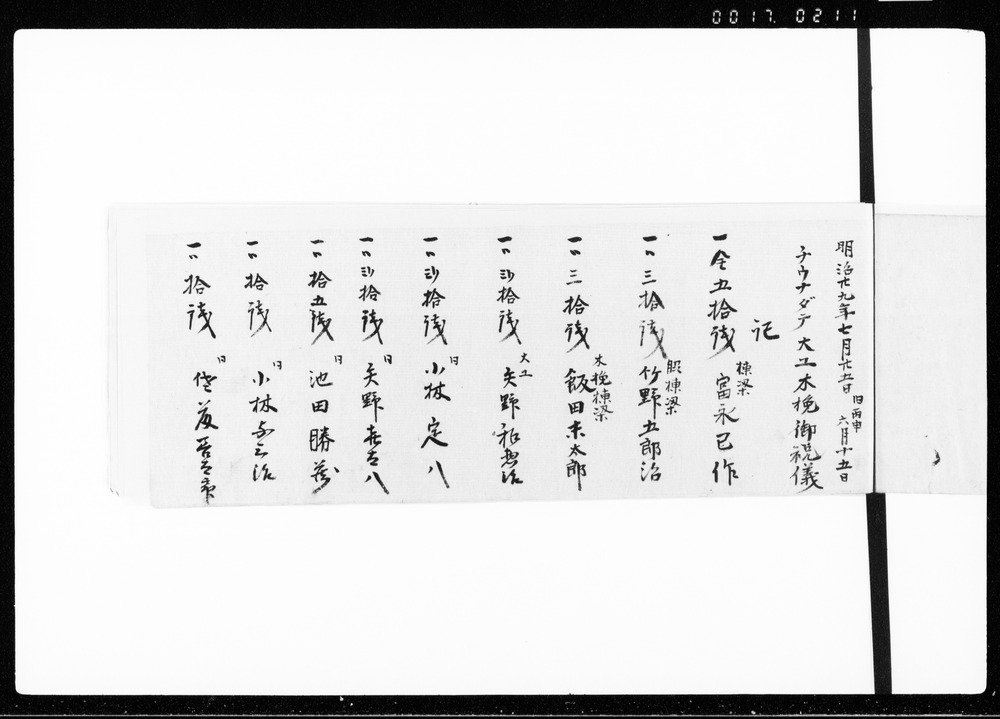 0017. 0211
明治廿九年七月廿五日 旧丙申 六月十五日
チウナダテ大工木挽御祝儀
記
一金五拾銭 棟梁 富永巳作
一〃三拾銭 脇棟梁 竹野五郎治
一〃三拾銭 木挽棟梁 飯田末太郎
一〃弐拾銭 大工 矢野
一〃弐拾銭 〃 小林定八
一〃弐拾銭 〃 矢野喜八
一〃拾五銭 〃 池田勝蔵
一〃拾銭 〃 小林
一〃拾銭 〃